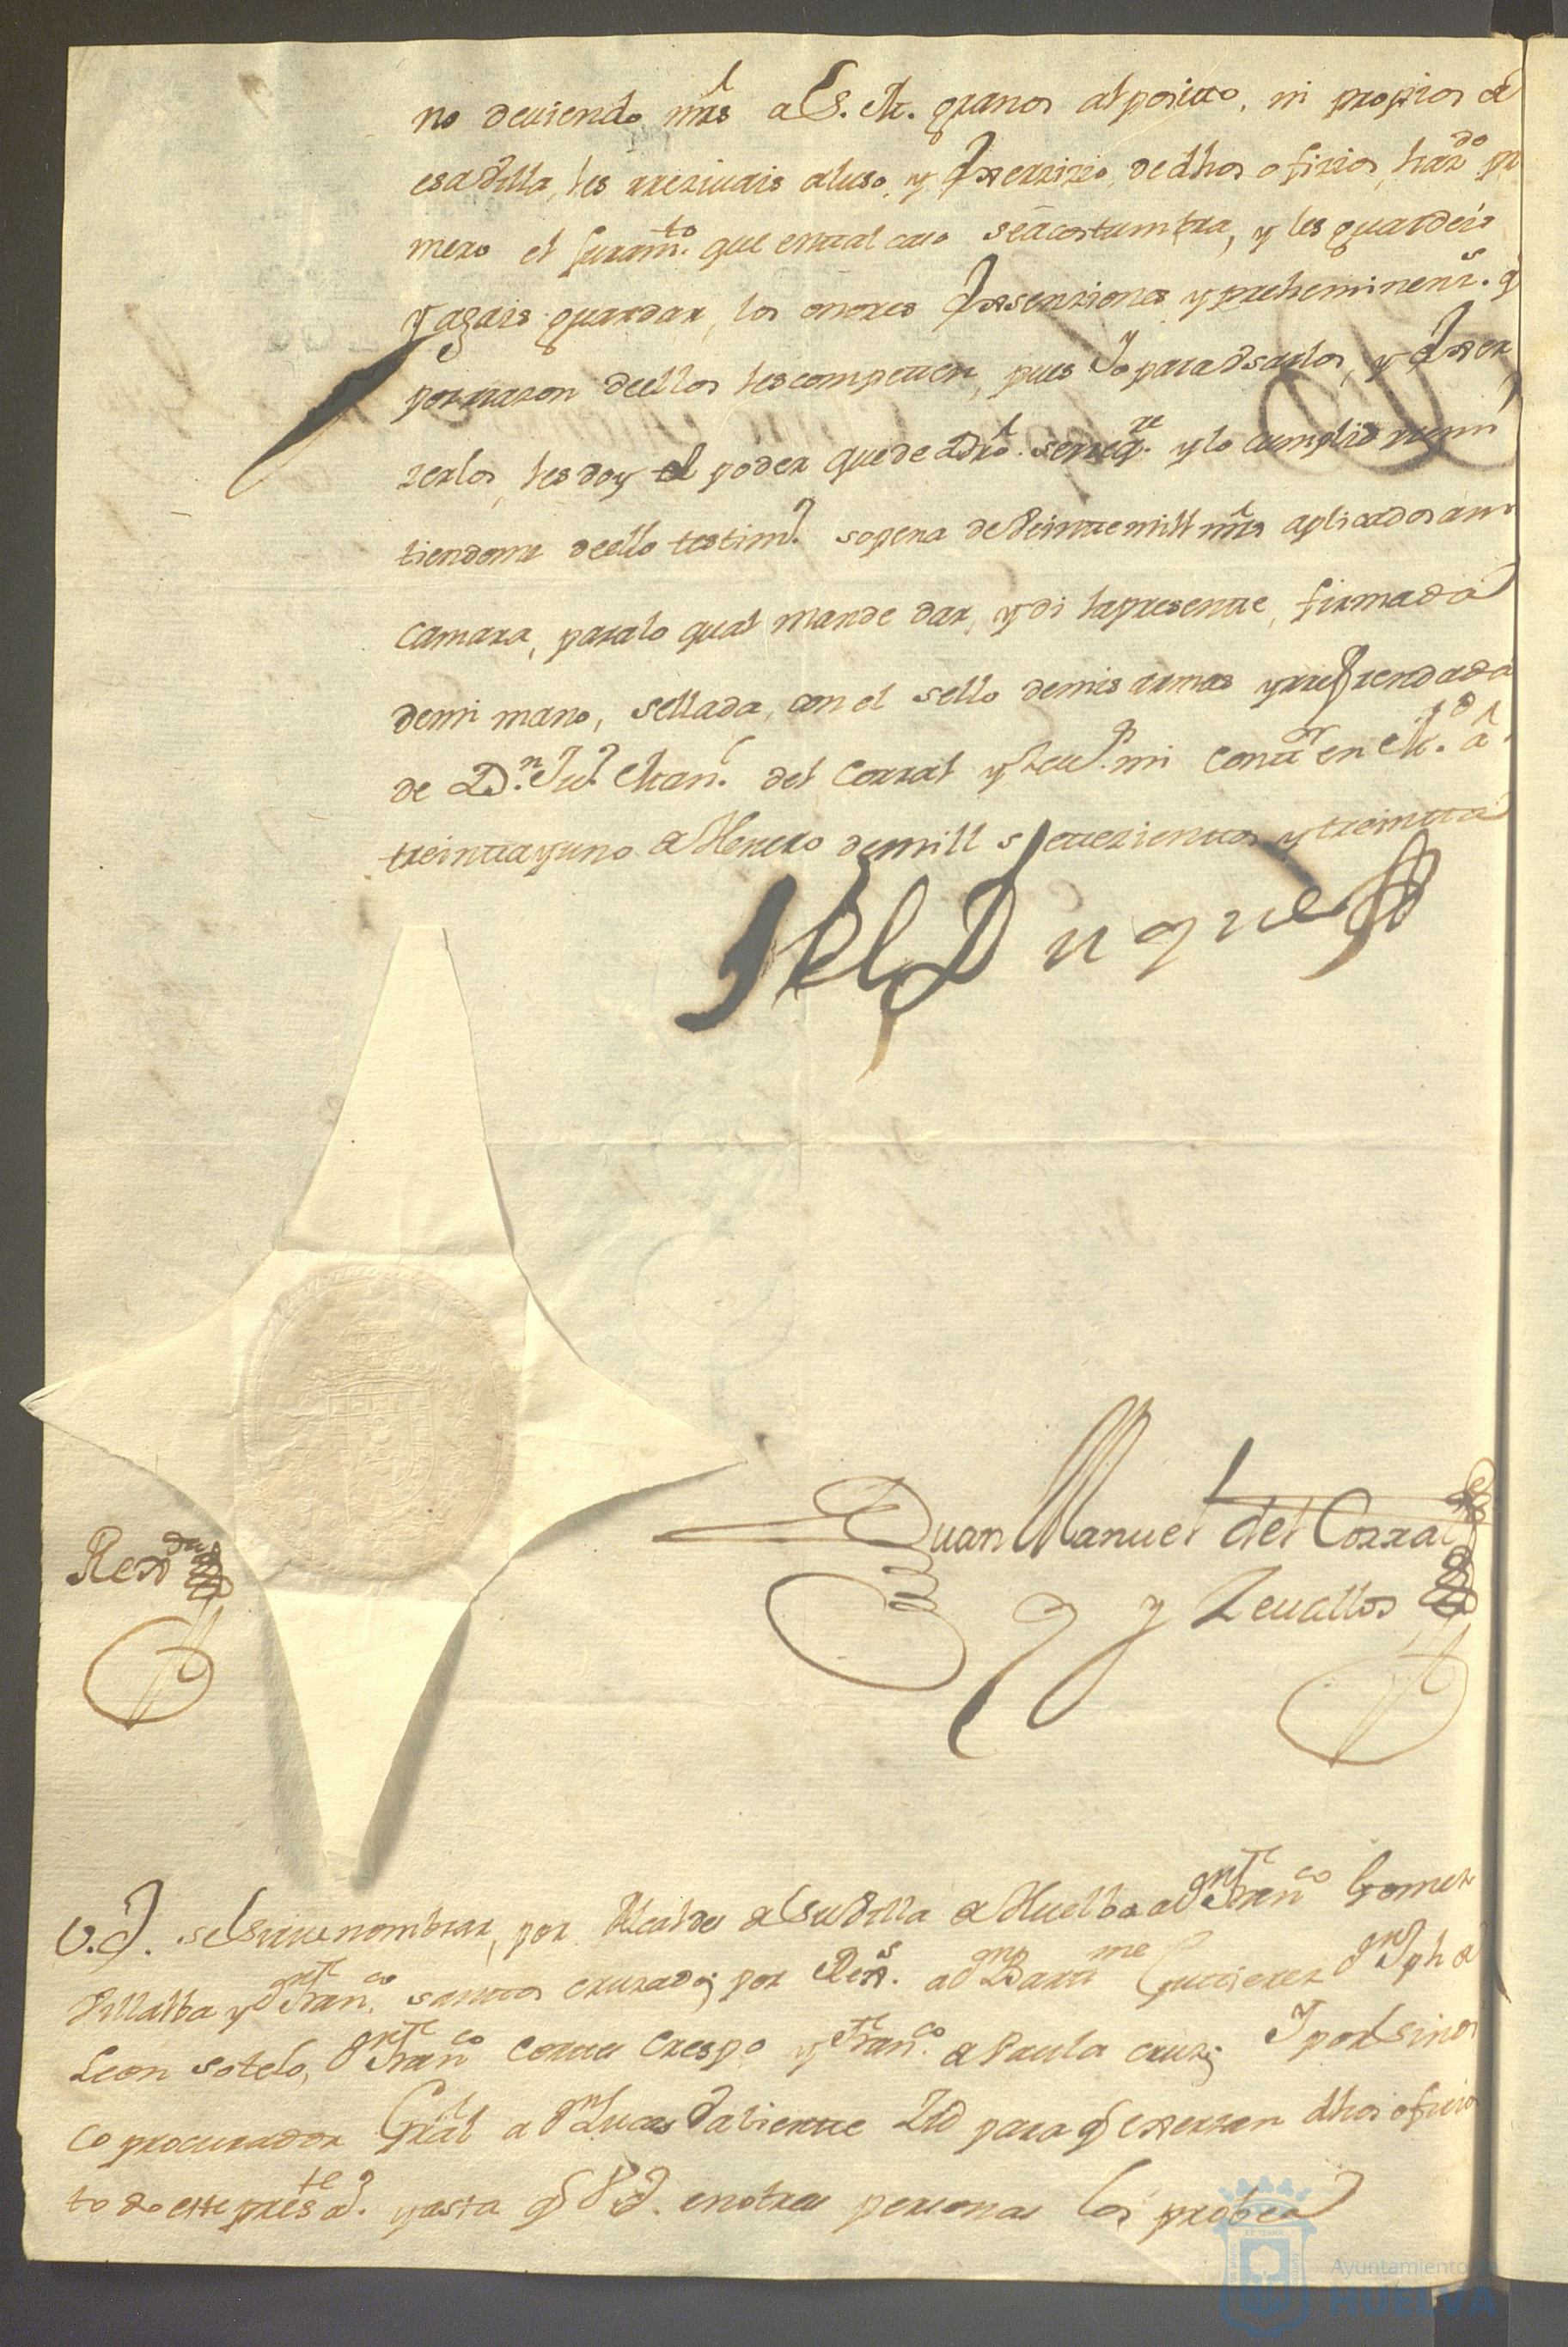 no deuiendo mrs a S. M. granos al posito, ni propios de
esa Villa, les rreziuais al uso, y Exerzizio, de dhos ofizios, haz.do pri
mero el Juram.to que en tal caso se acostumbra, y les guardeis
y agais guardar, los onores Exsenziones y preheminenz.s q
por rrazon de ellos les competten, pues Yo para Vsarlos, y Exer
zerlos, les doy el poder que de Dro. se req.re y lo cumplid rremi
tiendome de ello testim.o so pena de Veinte mill mrs aplicados a mi
Camara, para lo qual mande dar, y di la presente, firmada
de mi mano, sellada, con el sello de mis armas y rrefrendada
de D.n Ju.o Man.l del Corral y Zeu.s mi Cont.r en M.d a
treinta y uno de Henero de mill settezientos y treinta
El Duque
Juan Manuel del Corral
y Zeuallos
Rex.da
V.E. se sirue nombrar, por Alcaldes de su Villa de Huelba a d.n Fran.co Gomez
Villalba y d.n Fran.co santos cruzado; por Rex.s a d.n Barme Gutierrez d.n Jph de
Leon sotelo, d.n Fran.co Cortes Crespo y Fran.co de Paula cruz; Y por sindi
co procurador Gral a d.n Lucas Valiente Zid para q exerzan dhos ofizios
todo este pres.te a.o y asta q V.E. en otras personas los probea
Ayuntamiento de
HUELVA